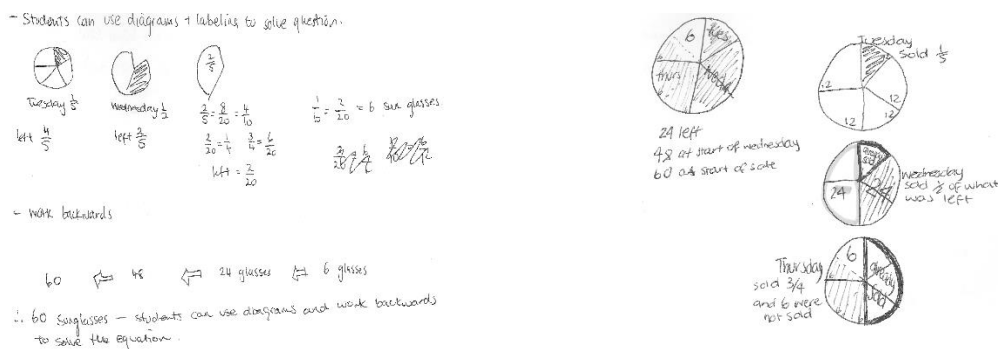 - Students can use diagrams + labeling to solve question.
2/5
Tuesday 1/5
Wednesday 1/2
left 4/5
left 2/5
2/5 = 8/20 = 4/10
2/20 = 1/4 3/4 = 6/20
left = 2/20
1/10 = 2/20 = 6 sun glasses
- work backwards
60 ⇐ 48 ⇐ 24 glasses ⇐ 6 glasses
∴ 60 sunglasses - students can use diagrams and work backwards
to solve the equation.
6
Tues
Thurs
Weds
24 left
48 at start of wednesday
60 at start of sale
Tuesday
sold 1/5
12
12
12
12
already
sold
24
24
Wednesday
sold 1/2 of what
was left
6
already
sold
Thursday
sold 3/4
and 6 were
not sold